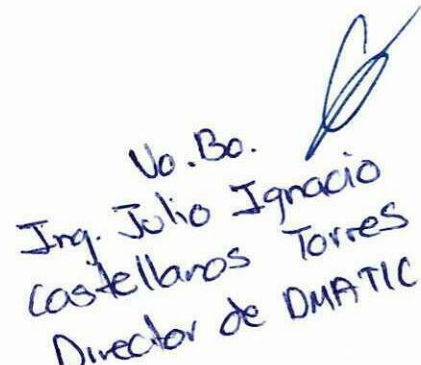 Vo.Bo.
Ing. Julio Ignacio
Castellanos Torres
Director de DMATIC